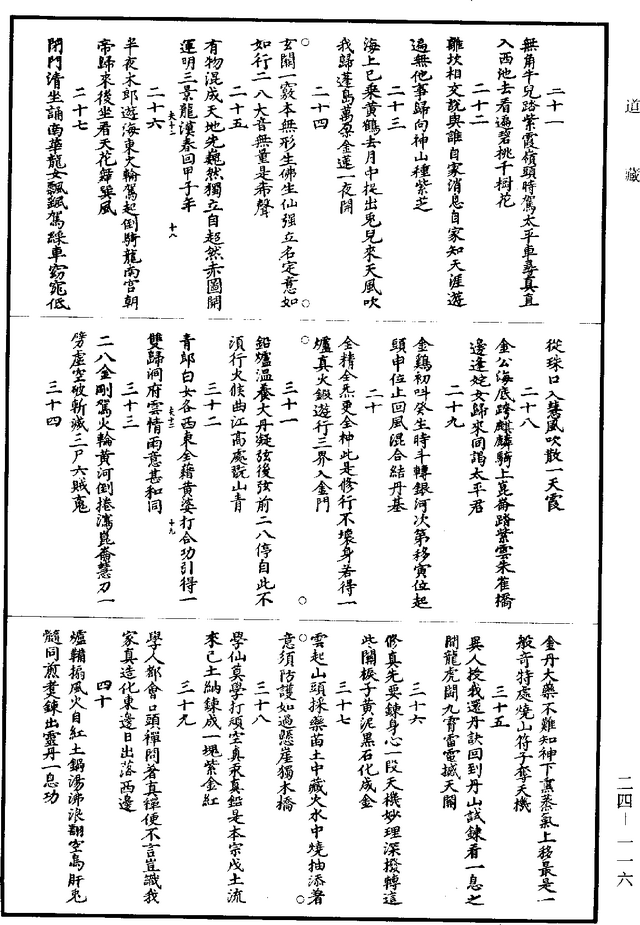 道藏
二十一
無角牛兒踏紫霞嶺頭時駕太平車尋真直
入西池去看遍碧桃千樹花
二十二
離坎相交說與誰自家消息自家知天涯遊
遍無他事歸向神山種紫芝
二十三
海上已乘黃鶴去月中捉出兎兒來天風吹
我歸蓬島萬朶金蓮一夜開
二十四
玄關一竅本無形生佛生仙强立名定意如
如行二八大音無量是希聲
二十五
有物混成天地先巍然獨立自超然赤圖開
運明三景龍漢春回甲子年
夫十二
十八
二十六
半夜木郎遊海東火輪駕起倒騎龍南宮朝
帝歸來後坐看天花歸巽風
二十七
閉門清坐誦南華龍女飄飄駕綵車窈窕低
從珠口入慧風吹散一天霞
二十八
金公海底跨麒麟騎上崑崙踏紫雲朱雀橋
邊逢姹女歸來同謁太平君
二十九
金鷄初呌癸生時斗轉銀河次第移寅位起
頭申位止回風混合結丹基
二十
全精全炁更全神此是修行不壞身若得一
爐真火鍛遊行三界入金門
三十一
鉛爐溫養大丹凝弦後弦前二八停自此不
須行火候曲江高處翫山青
三十二
青郎白女各西東全藉黃婆打合功引得一
夫十二
十九
雙歸洞府雲情雨意甚和同
三十三
二八金剛駕火輪黃河倒捲瀉崑崙慧刀一
劈虛空破斬滅三尸六賊䰟
三十四
金丹大藥不難知神下薰蒸氣上移最是一
般竒特處燒山符子奪天機
三十五
異人授我還丹訣回到丹山試鍊看一息之
間龍虎鬪九霄雷電撼天關
三十六
修真先要鍊身心一段天機妙理深撥轉這
此關棙子黃泥黑石化成金
三十七
雲起山頭採藥苗土中藏火水中燒抽添著
意須防護如過懸崖獨木橋
三十八
學仙莫學打頑空真汞真鉛是本宗戊土流
來己土納鍊成一塊紫金紅
三十九
學人都會口頭禪問著真禪便不言豈識我
家真造化東邊日出落西邊
四十
爐韛搧風火自紅土鍋湯沸浪翻空烏肝兎
髓同煎煑鍊出靈丹一息功
二四—一一六